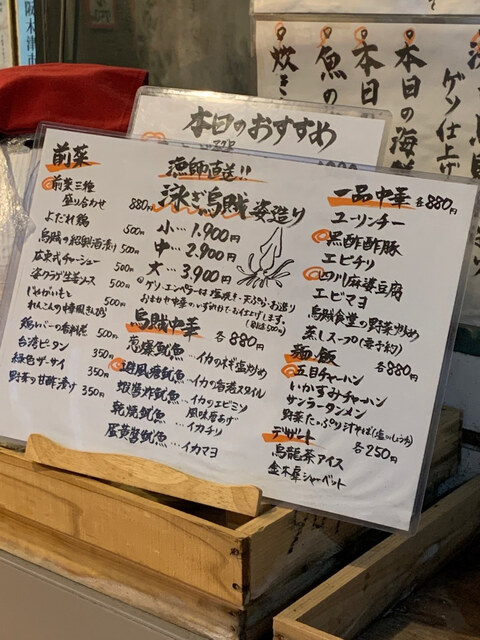 本日のおすすめ
漁師直送!!
泳ぎ烏賊姿造り
小…1,900円
中…2,900円
大…3,900円
ゲソ、エンペラーは塩焼き・天ぷら・お造り
おまかせ中華のいずれかでお仕上げします。
烏賊中華 各880円
葱爆魷魚…イカのネギ塩炒め
避風塘魷魚…イカの香港スタイル
蝦醤炸魷魚…イカのエビミソ
風味唐あげ
乾焼魷魚…イカチリ
蛋黄醤魷魚…イカマヨ
前菜
前菜三種
盛り合わせ 880円
よだれ鶏 500円
烏賊の紹興酒漬け 500円
広東式チャーシュー 500円
姿クラゲ生姜ソース 500円
じゃがいもと
れんこんの中華風きんぴら
鶏レバーの香料煮 500円
台湾ピータン 350円
緑色ザーサイ 350円
野菜の甘酢漬け 350円
一品中華 各880円
ユーリンチー
黒酢酢豚
エビチリ
四川麻婆豆腐
エビマヨ
烏賊食堂の野菜炒め
蒸しスープ(要予約)
麺・飯 各880円
五目チャーハン
いかすみチャーハン
サンラータンメン
野菜たっぷり汁そば(塩orしょうゆ)
デザート 各250円
烏龍茶アイス
金木犀シャーベット
ゲソ仕上げ
本日の海鮮
本日
魚の
炊き